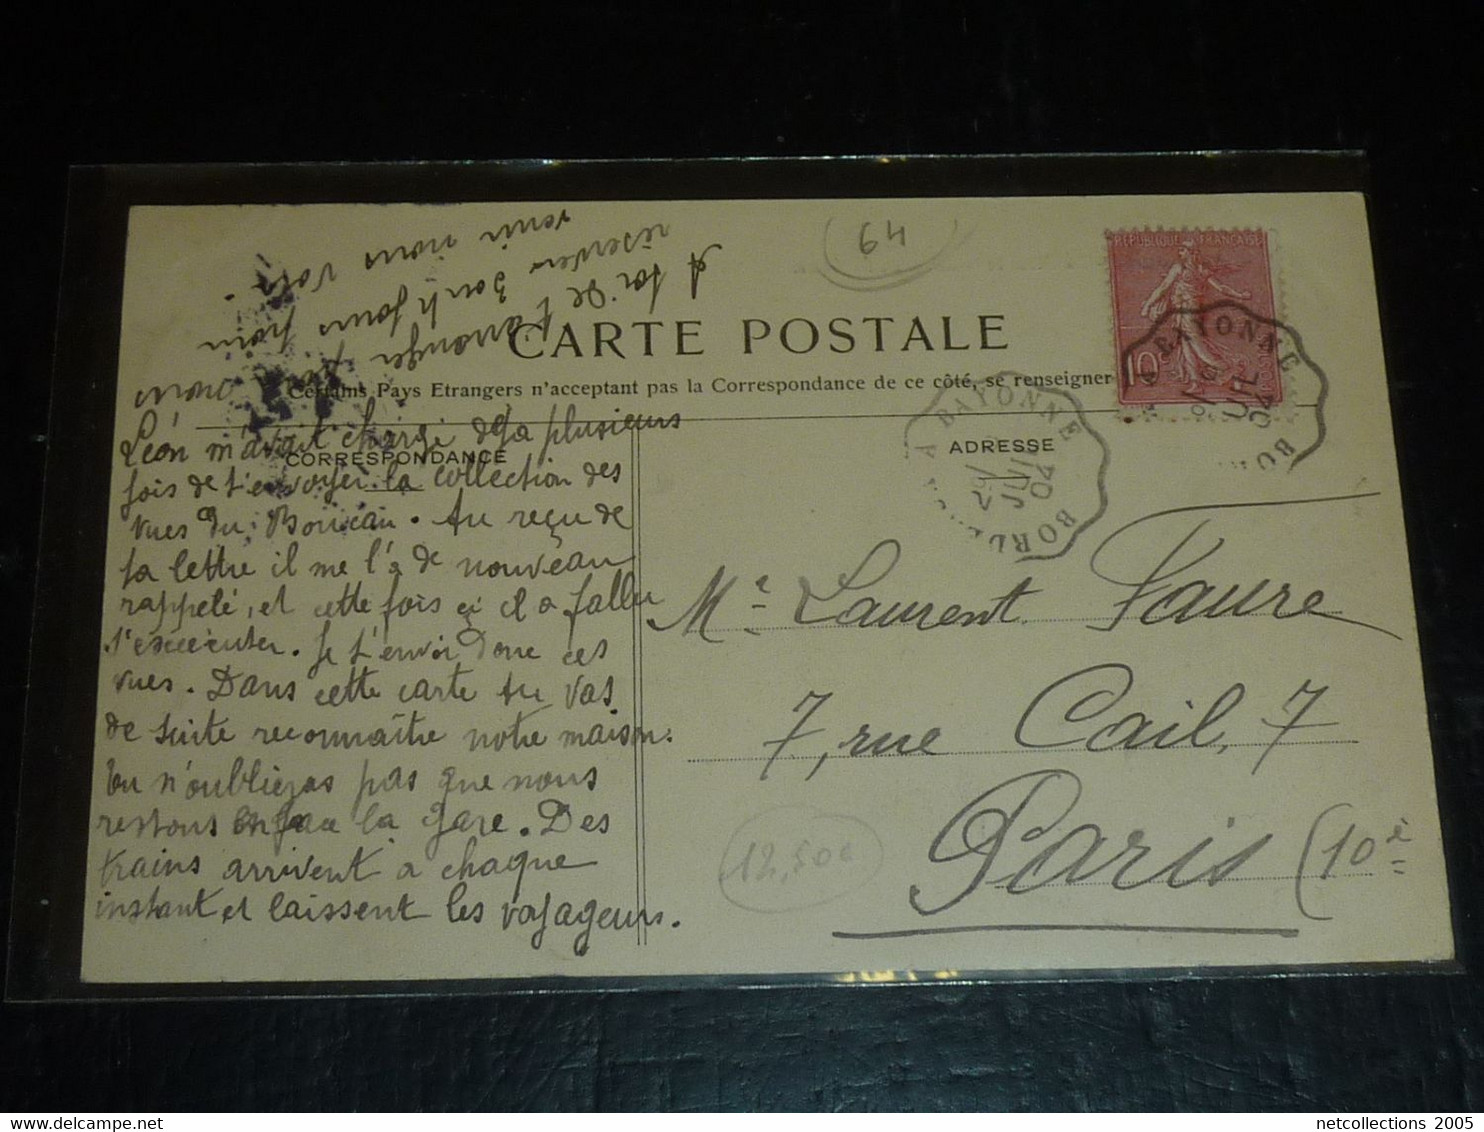 64
RÉPUBLIQUE FRANÇAISE
10c
BAYONNE
CARTE POSTALE
Certains Pays Etrangers n'acceptant pas la Correspondance de ce côté, se renseigner
CORRESPONDANCE
ADRESSE
A BAYONNE
29
JUIL
04
BORDE
Léon m'avait chargé déja plusieurs
fois de t'envoyer la collection des
vues du Boucau. Au reçu de
ta lettre il me l'a de nouveau
rappelé, et cette fois ci il a fallu
s'exécuter. Je t'envoi donc ces
vues. Dans cette carte tu vas
de suite reconnaître notre maison.
Tu n'oublieras pas que nous
restons en face la gare. Des
trains arrivent a chaque
instant et laissent les voyageurs.
A toi de t'arranger pour nous
réserver douh jours pour
venir nous voir.
Mr Laurent Faure
7, rue Cail, 7
Paris (10è
12,50e
netcollections 2005